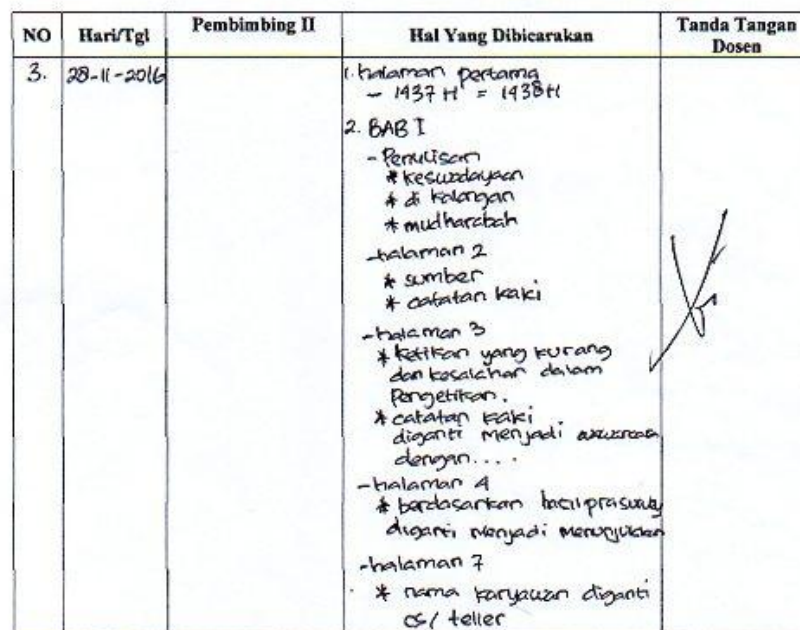 NO Hari/Tgl Pembimbing II Hal Yang Dibicarakan Tanda Tangan
Dosen
3. 28-11-2016 1. halaman pertama
- 1437 H = 1438 H
2. BAB I
- Penulisan
* keswadayaan
* di kalangan
* mudharabah
- halaman 2
* sumber
* catatan kaki
- halaman 3
* ketikan yang kurang
dan kesalahan dalam
Pengetikan.
* catatan kaki
diganti menjadi wawancara
dengan....
- halaman 4
* berdasarkan hasil prasurvey
diganti menjadi menunjukkan
- halaman 7
* nama karyawan diganti
cs/ teller